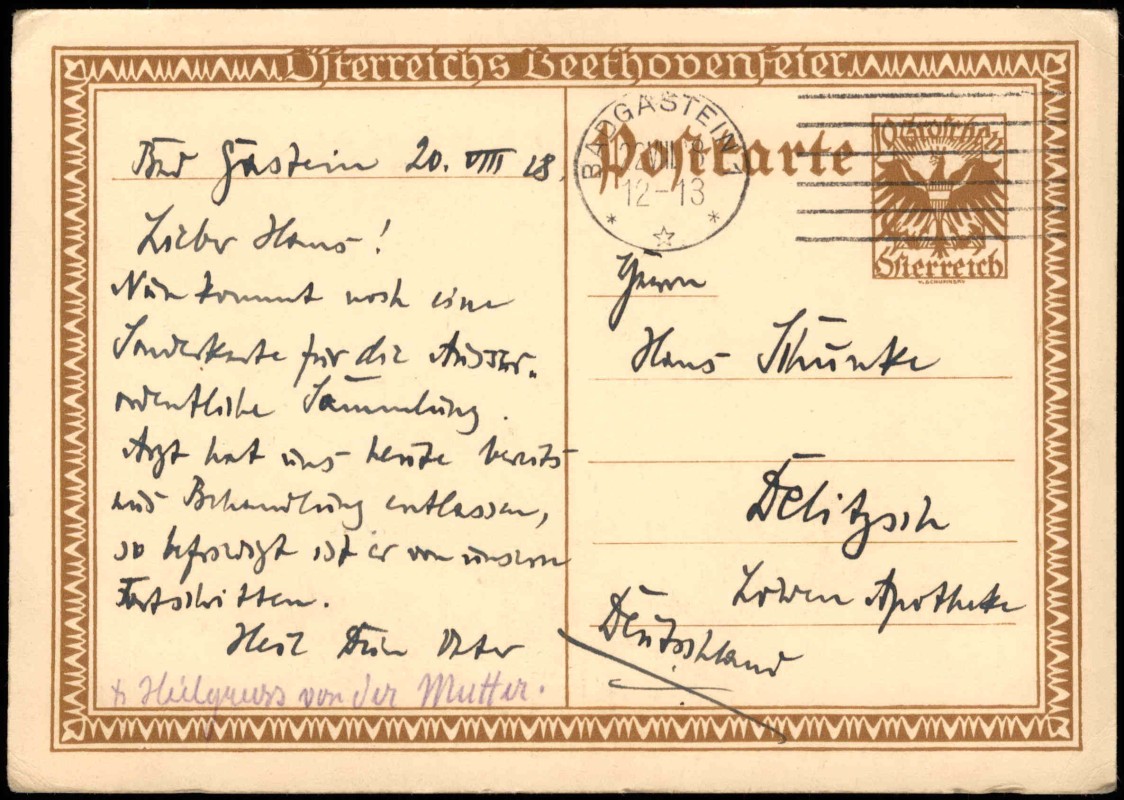 Österreichs Beethovenfeier
Bad Gastein 20. VIII 28.
Lieber Hans!
Nun kommt noch eine
Sonderkarte für die Ausser-
ordentliche Sammlung.
Arzt hat uns heute bereits
aus Behandlung entlassen,
so befriedigt ist er von unsern
Fortschritten.
Heil Dein Vater
+ Heilgruss von der Mutter.
Postkarte
BADGASTEIN 1
22.VIII.28
12-13
10 Groschen
Österreich
Herrn
Hans Schünke
Delitzsch
Löwen Apotheke
Deutschland